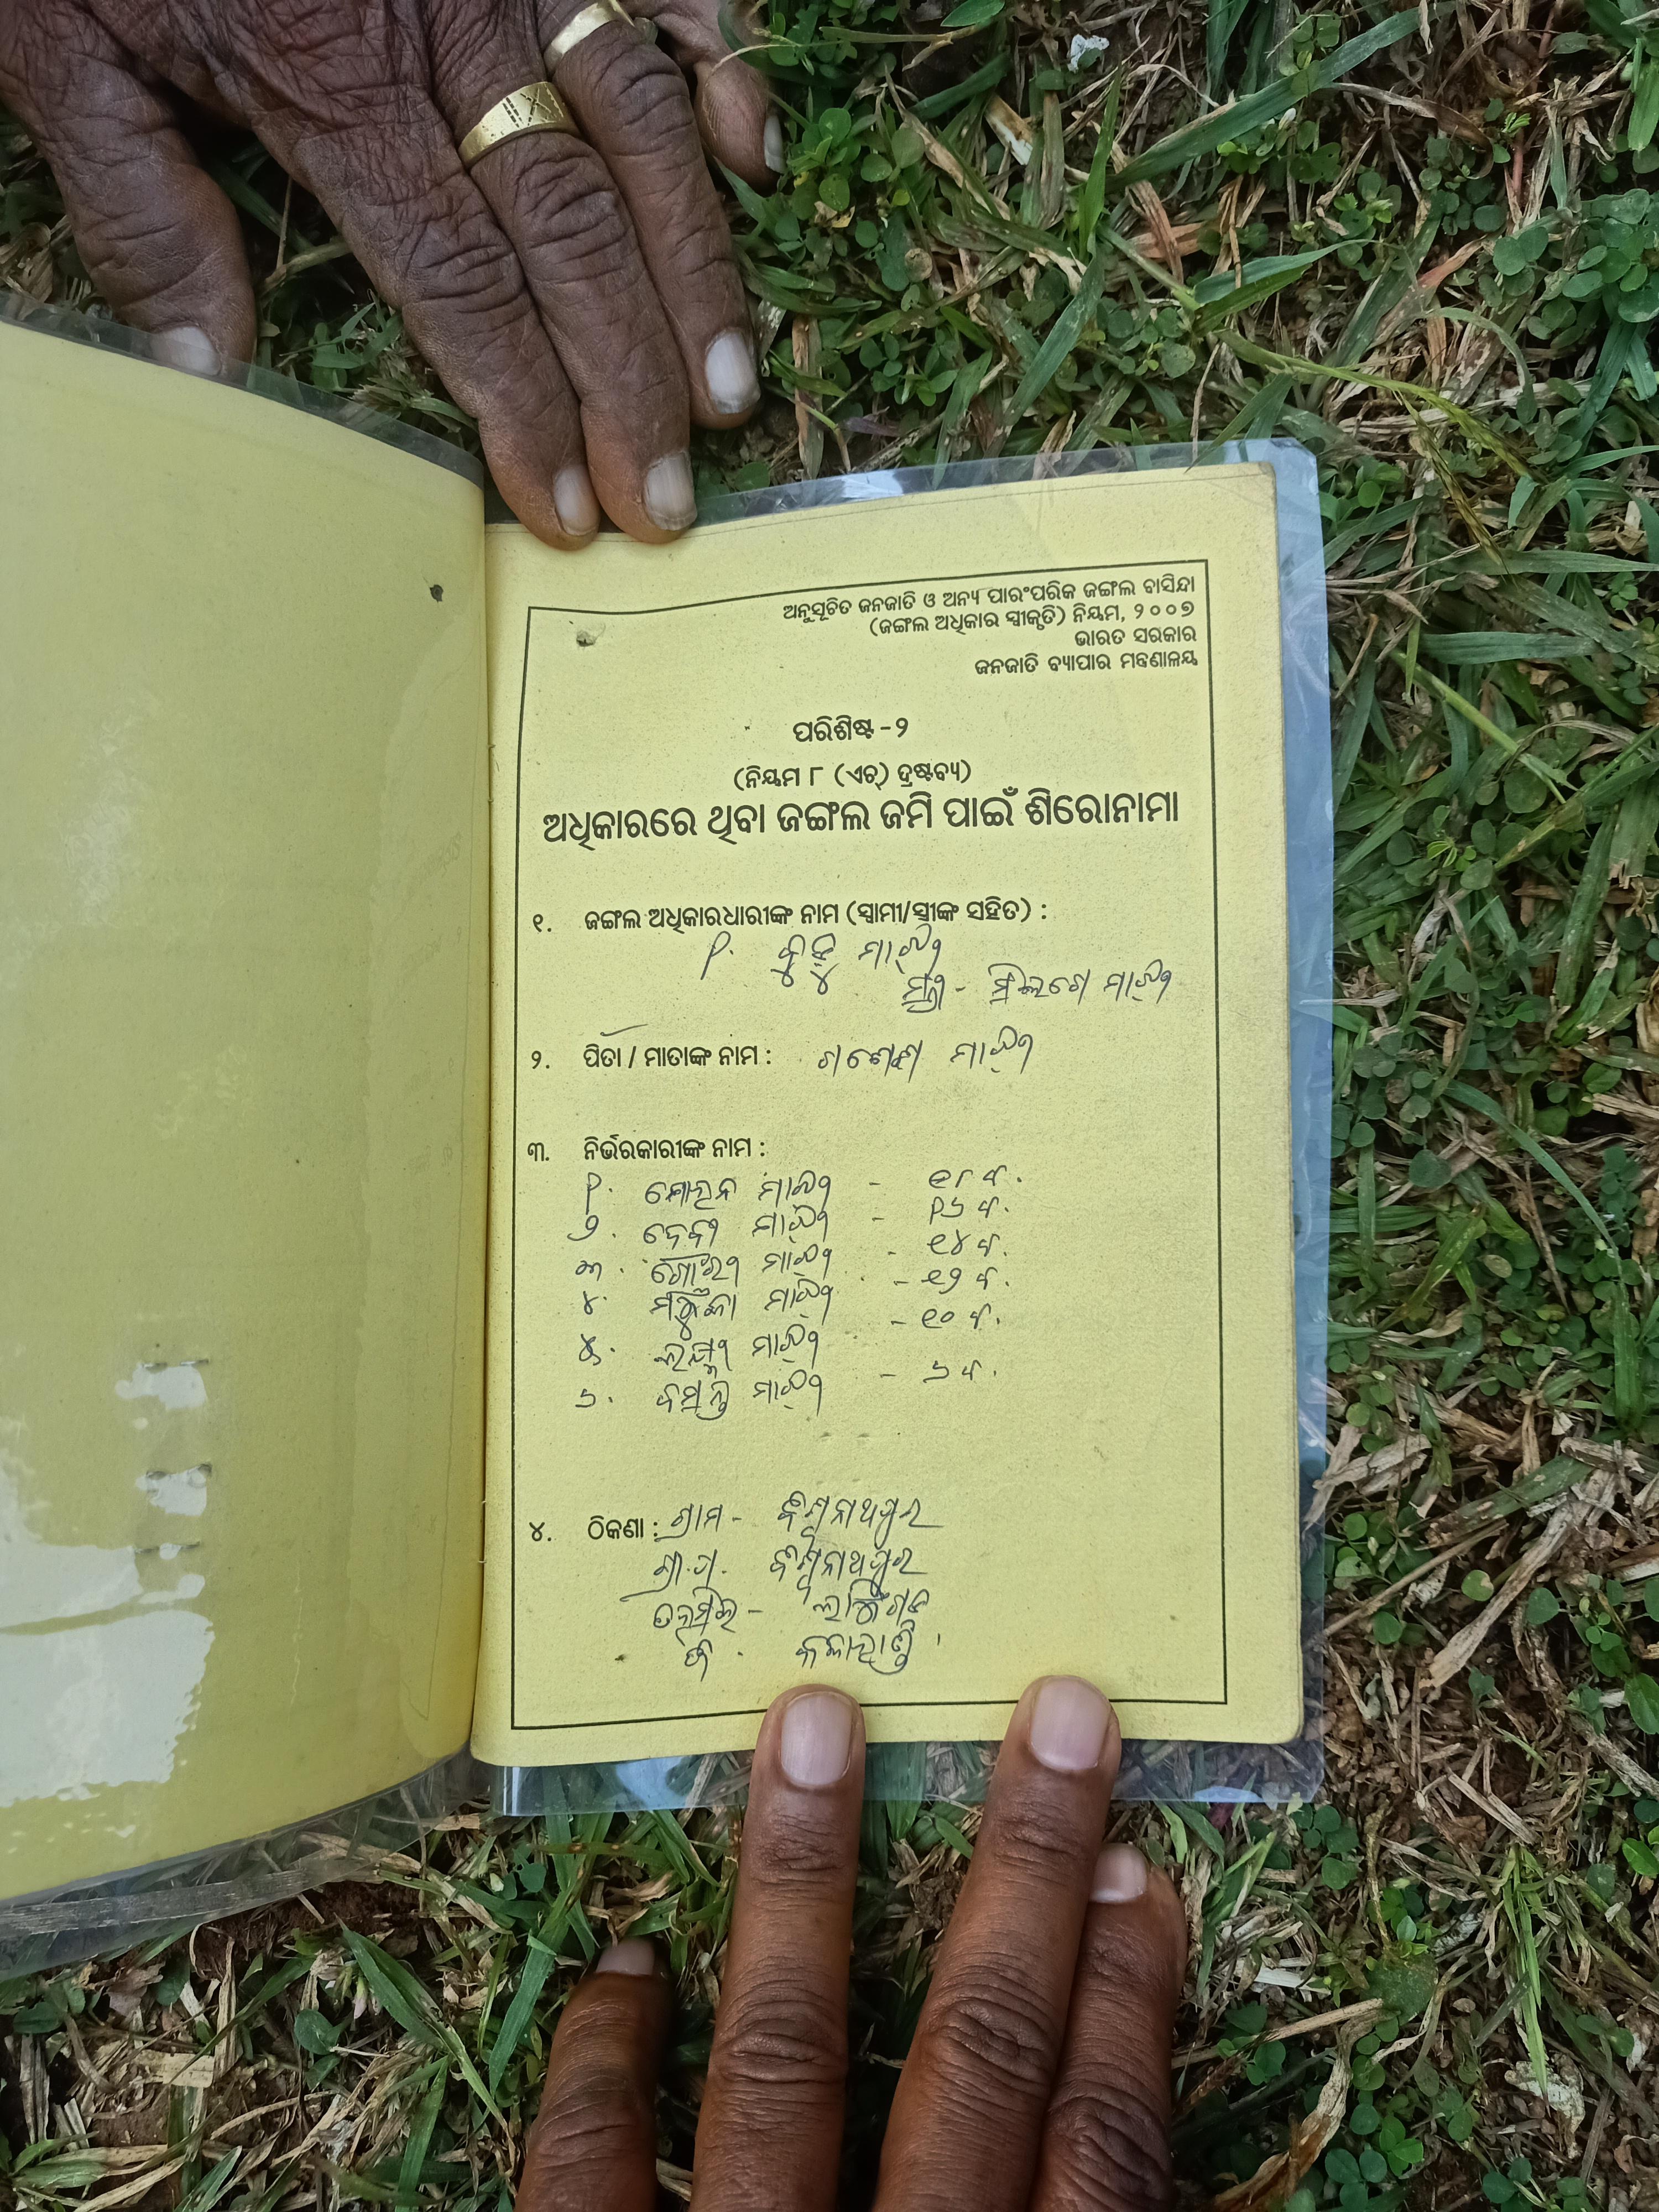 ଅନୁସୂଚିତ ଜନଜାତି ଓ ଅନ୍ୟ ପାରଂପରିକ ଜଙ୍ଗଲ ବାସିନ୍ଦା
(ଜଙ୍ଗଲ ଅଧିକାର ସ୍ୱୀକୃତି) ନିୟମ, ୨୦୦୭
ଭାରତ ସରକାର
ଜନଜାତି ବ୍ୟାପାର ମନ୍ତ୍ରଣାଳୟ
ପରିଶିଷ୍ଟ - ୨
(ନିୟମ ୮ (ଏଚ୍) ଦ୍ରଷ୍ଟବ୍ୟ)
ଅଧିକାରରେ ଥିବା ଜଙ୍ଗଲ ଜମି ପାଇଁ ଶିରୋନାମା
୧. ଜଙ୍ଗଲ ଅଧିକାରଧାରୀଙ୍କ ନାମ (ସ୍ୱାମୀ/ସ୍ତ୍ରୀଙ୍କ ସହିତ) :
୧. ମାଝୀ
ସ୍ତ୍ରୀ - ମାଝୀ
୨. ପିତା / ମାତାଙ୍କ ନାମ : ମାଝୀ
୩. ନିର୍ଭରକାରୀଙ୍କ ନାମ :
୧. ମାଝୀ - ୧୮ ବ.
୨. ଦେବୀ ମାଝୀ - ୧୬ ବ.
୩. ଗୌରୀ ମାଝୀ - ୧୪ ବ.
୪. ମାଝୀ - ୧୨ ବ.
୫. ଲକ୍ଷ୍ମୀ ମାଝୀ - ୧୦ ବ.
୬. ବସନ୍ତ ମାଝୀ - ୬ ବ.
୪. ଠିକଣା : ଗ୍ରାମ - ବିଶ୍ୱନାଥପୁର
ଗ୍ରା.ପ. ବିଶ୍ୱନାଥପୁର
ତହସିଲ - ଲାଞ୍ଜିଗଡ
ଜି. କଳାହାଣ୍ଡି